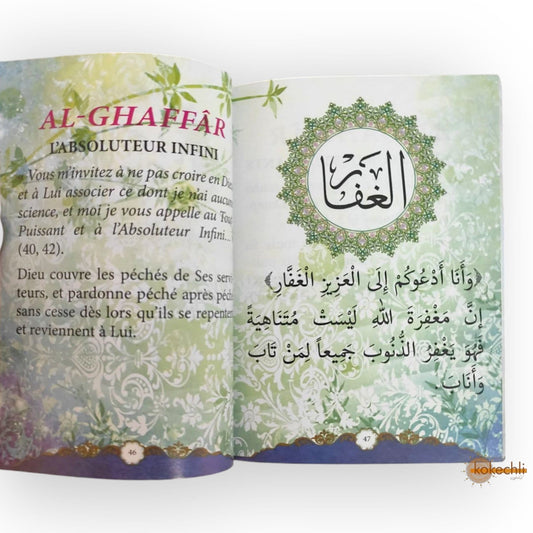 AL-GHAFFÂR
L'ABSOLUTEUR INFINI
Vous m'invitez à ne pas croire en Dieu
et à Lui associer ce dont je n'ai aucune
science, et moi je vous appelle au Tout
Puissant et à l'Absoluteur Infini...
(40, 42).
Dieu couvre les péchés de Ses servi-
teurs, et pardonne péché après péché
sans cesse dès lors qu'ils se repentent
et reviennent à Lui.
46
الغفار
﴿وَأَنَا أَدْعُوكُمْ إِلَى الْعَزِيزِ الْغَفَّارِ﴾
إِنَّ مَغْفِرَةَ اللهِ لَيْسَتْ مُتَنَاهِيَةً
فَهُوَ يَغْفِرُ الذُّنُوبَ جَمِيعاً لِمَنْ تَابَ
وَأَنَابَ.
47
kokechli